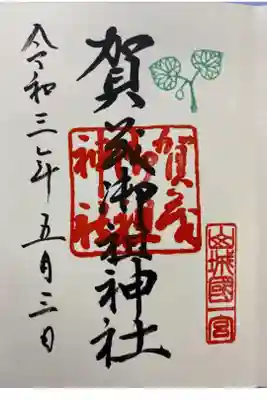 山城國一宮
賀茂御祖神社
賀茂御祖神社
令和三年五月三日